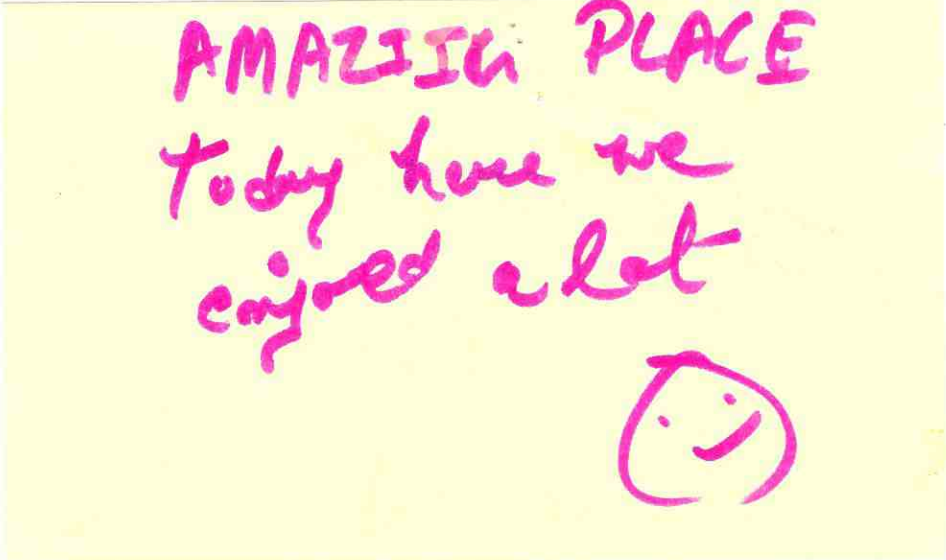 AMAZIIG PLACE
Today here we
enjoyed a lot